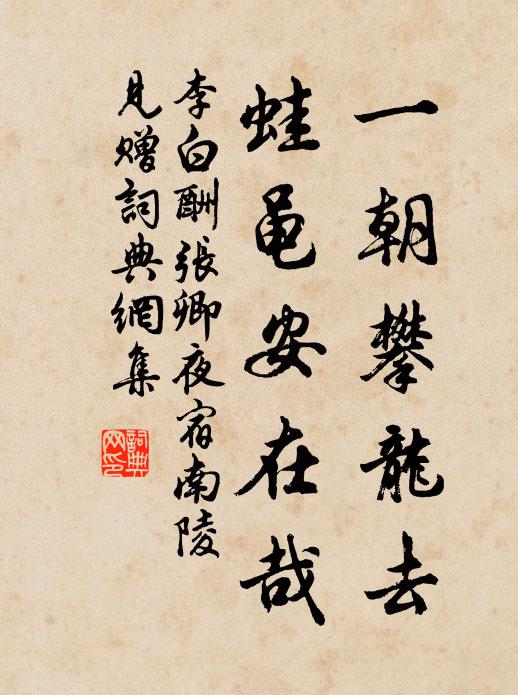 一朝攀龍去
蛙黽安在哉
李白酬張卿夜宿南陵
見贈詞典網集
詞典
网印